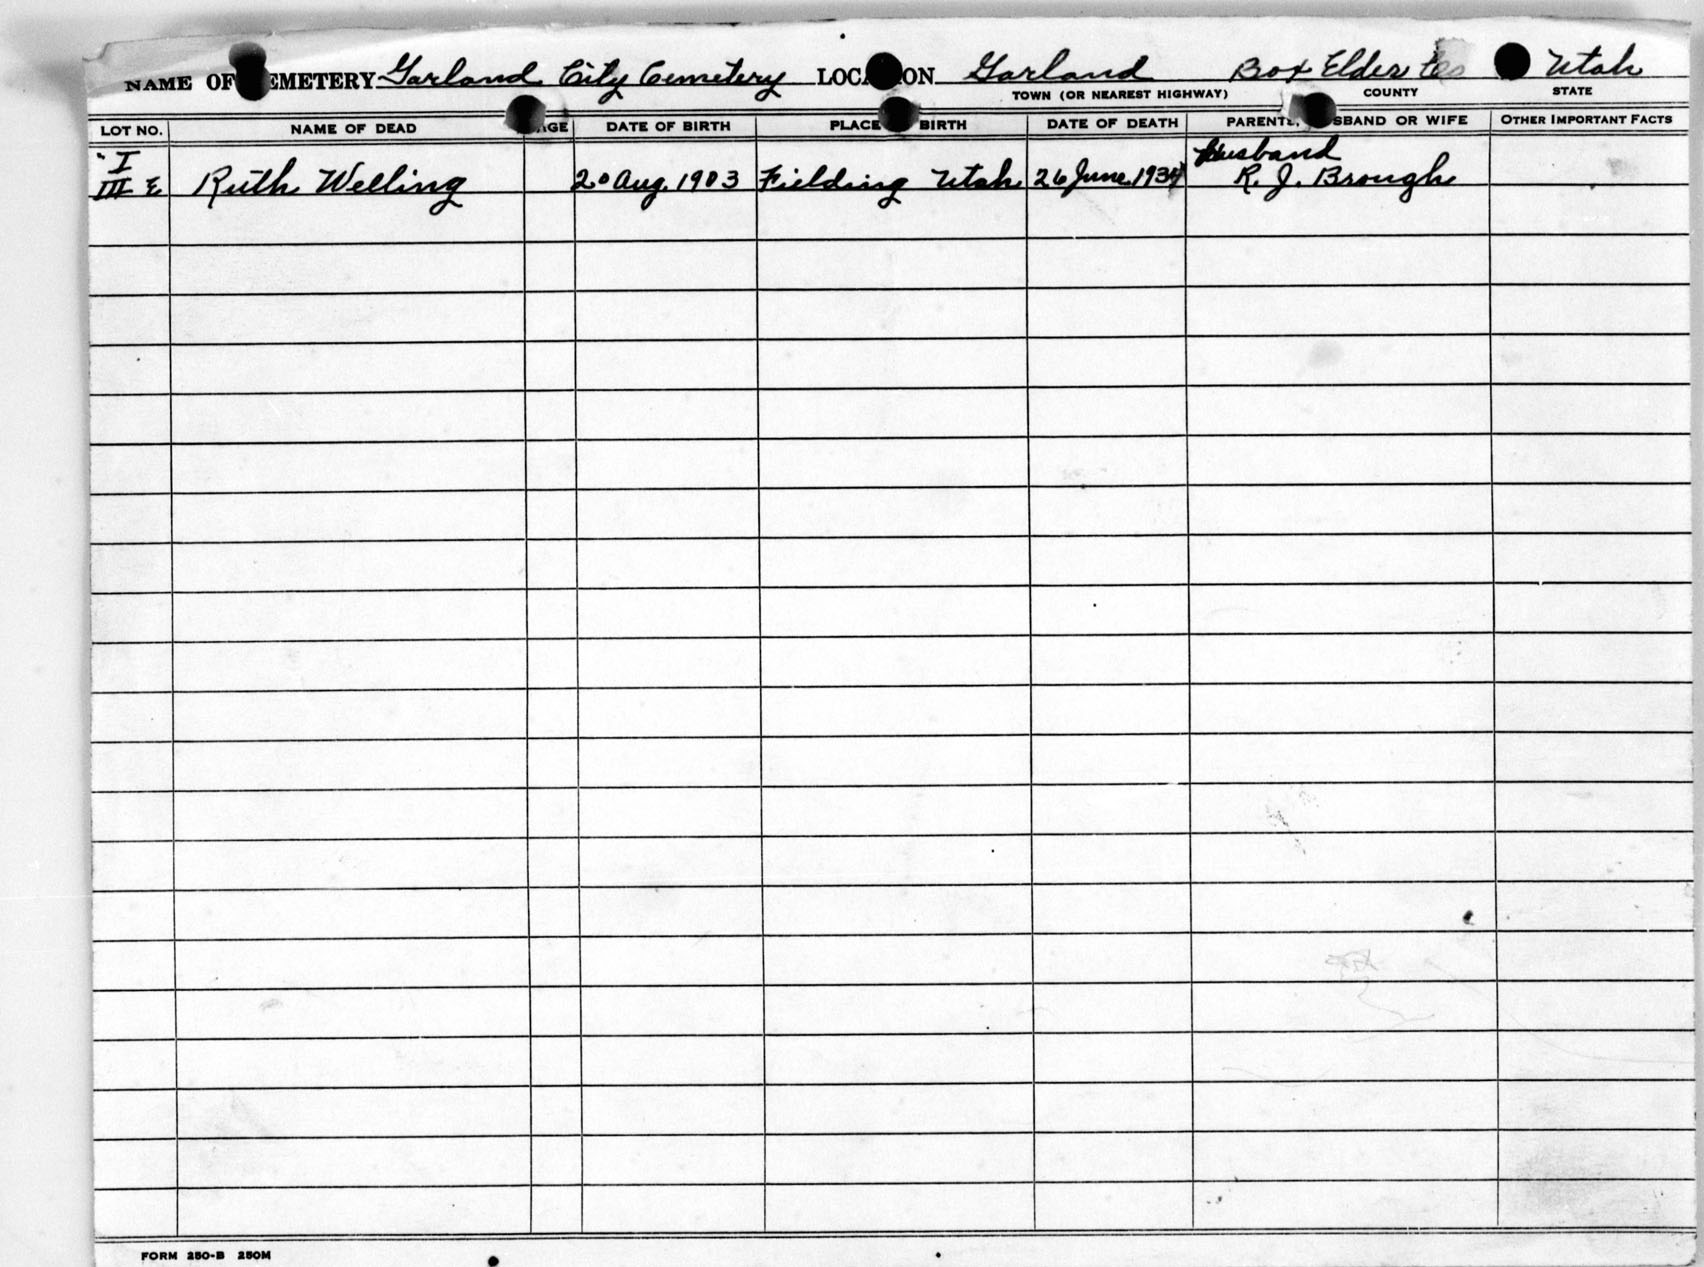 NAME OF CEMETERY Garland City Cemetery LOCATION Garland Box Elder Utah
TOWN (OR NEAREST HIGHWAY) COUNTY STATE
LOT NO. NAME OF DEAD AGE DATE OF BIRTH PLACE BIRTH DATE OF DEATH PARENTS, HUSBAND OR WIFE OTHER IMPORTANT FACTS
I Husband
III E Ruth Welling 20 Aug. 1903 Fielding Utah 26 June 1934 R. J. Brough
FORM 250-B 250M